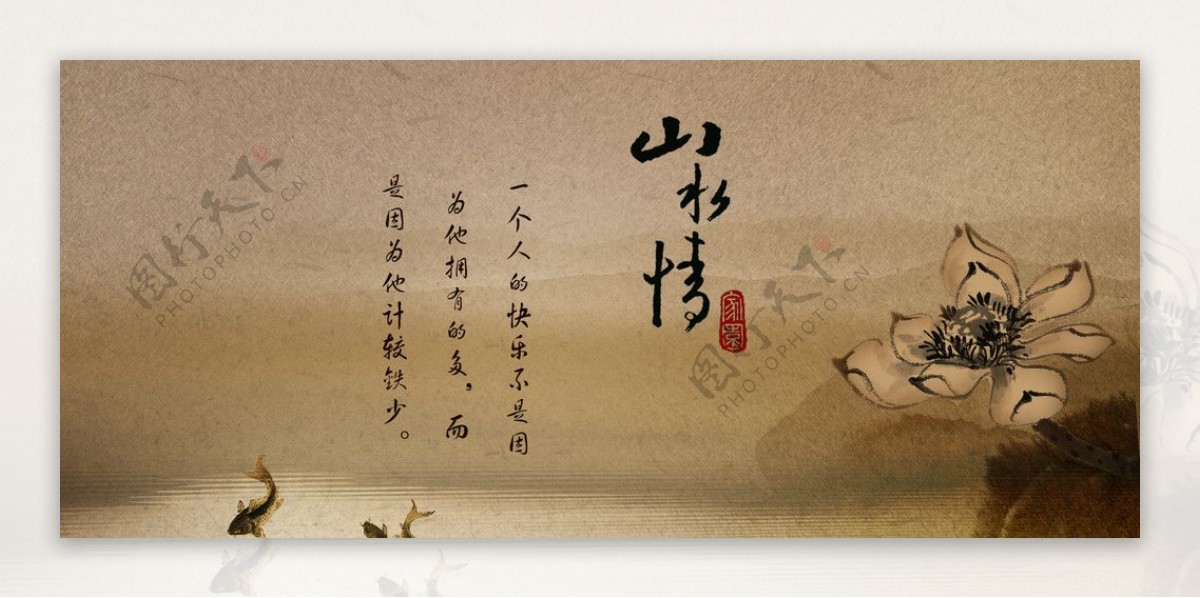 山水情
一个人的快乐不是因
为他拥有的多，而
是因为他计较铁少。
图行天下
PHOTOPHOTO.CN
图行天下
PHOTOPHOTO.CN